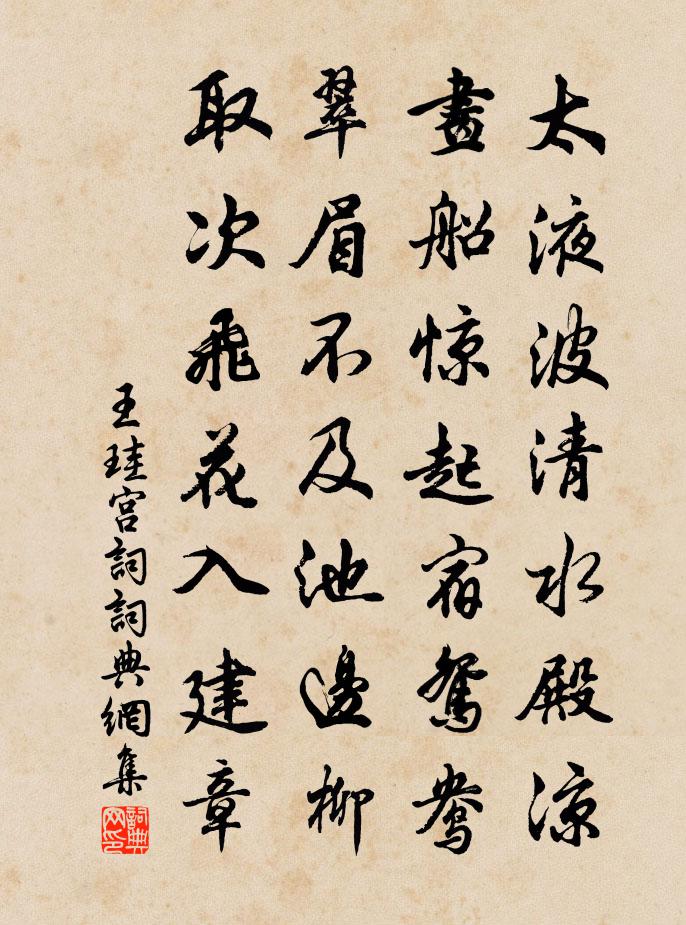 太液波清水殿涼
畫船惊起宿鴛鴦
翠眉不及池邊柳
取次飛花入建章
王珪宮詞詞典網集
詞典
网印